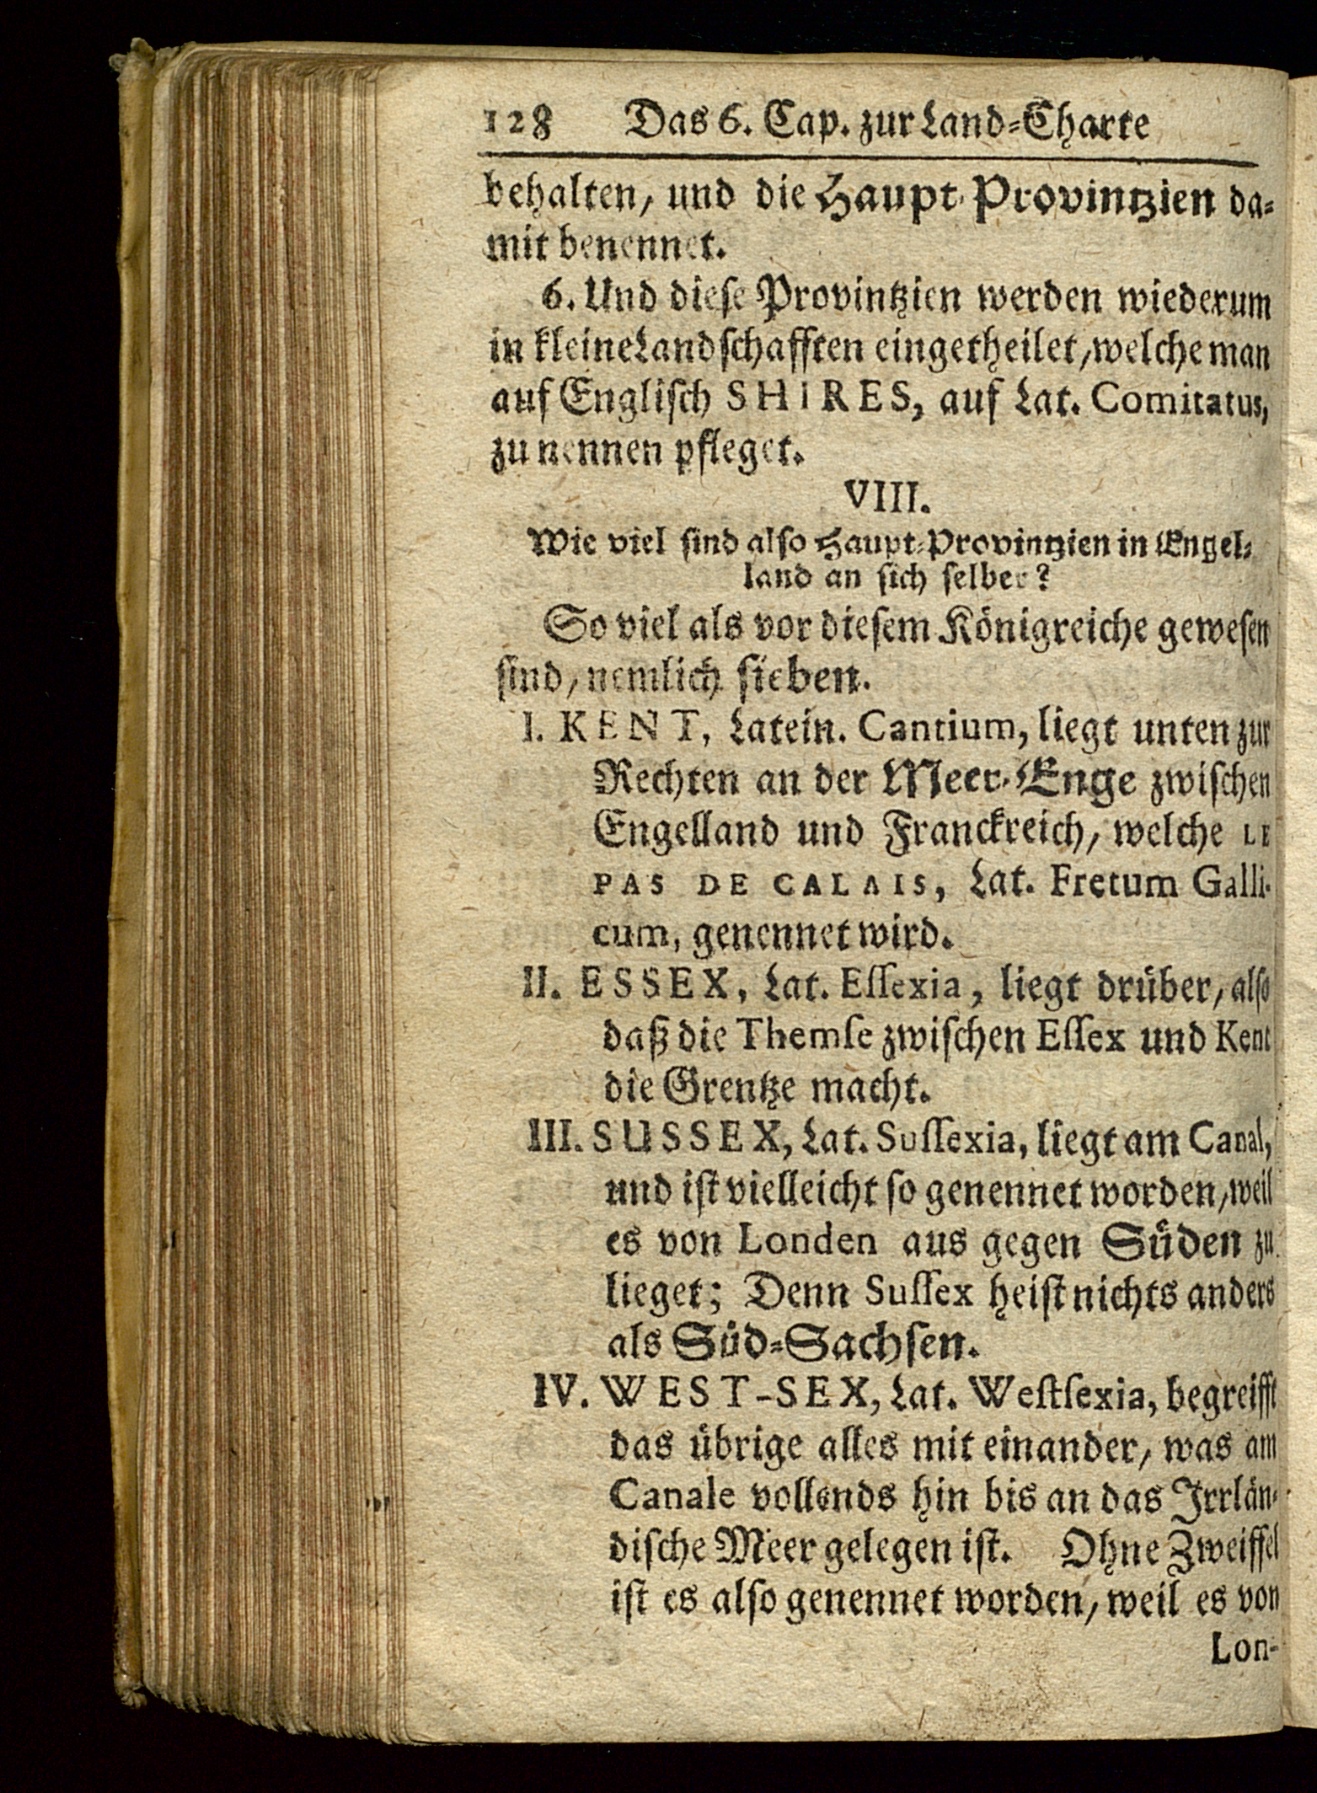 128 Das 6. Cap. zur Land-Charte
behalten, und die Haupt-Provintzien da-
mit benennet.
6. Und diese Provintzien werden wiederum
in kleine Landschafften eingetheilet, welche man
auf Englisch SHIRES, auf Lat. Comitatus,
zu nennen pfleget.
VIII.
Wie viel sind also Haupt-Provintzien in Engel-
land an sich selber?
So viel als vor diesem Königreiche gewesen
sind, nemlich sieben.
I. KENT, Latein. Cantium, liegt unten zur
Rechten an der Meer-Enge zwischen
Engelland und Franckreich, welche LE
PAS DE CALAIS, Lat. Fretum Galli-
cum, genennet wird.
II. ESSEX, Lat. Essexia, liegt drüber, also
daß die Themse zwischen Essex und Kent
die Grentze macht.
III. SUSSEX, Lat. Sussexia, liegt am Canal,
und ist vielleicht so genennet worden, weil
es von Londen aus gegen Süden zu
lieget; Denn Sussex heist nichts anders
als Süd-Sachsen.
IV. WEST-SEX, Lat. Westsexia, begreifft
das übrige alles mit einander, was am
Canale vollends hin bis an das Irrlän-
dische Meer gelegen ist. Ohne Zweiffel
ist es also genennet worden, weil es von
Lon-